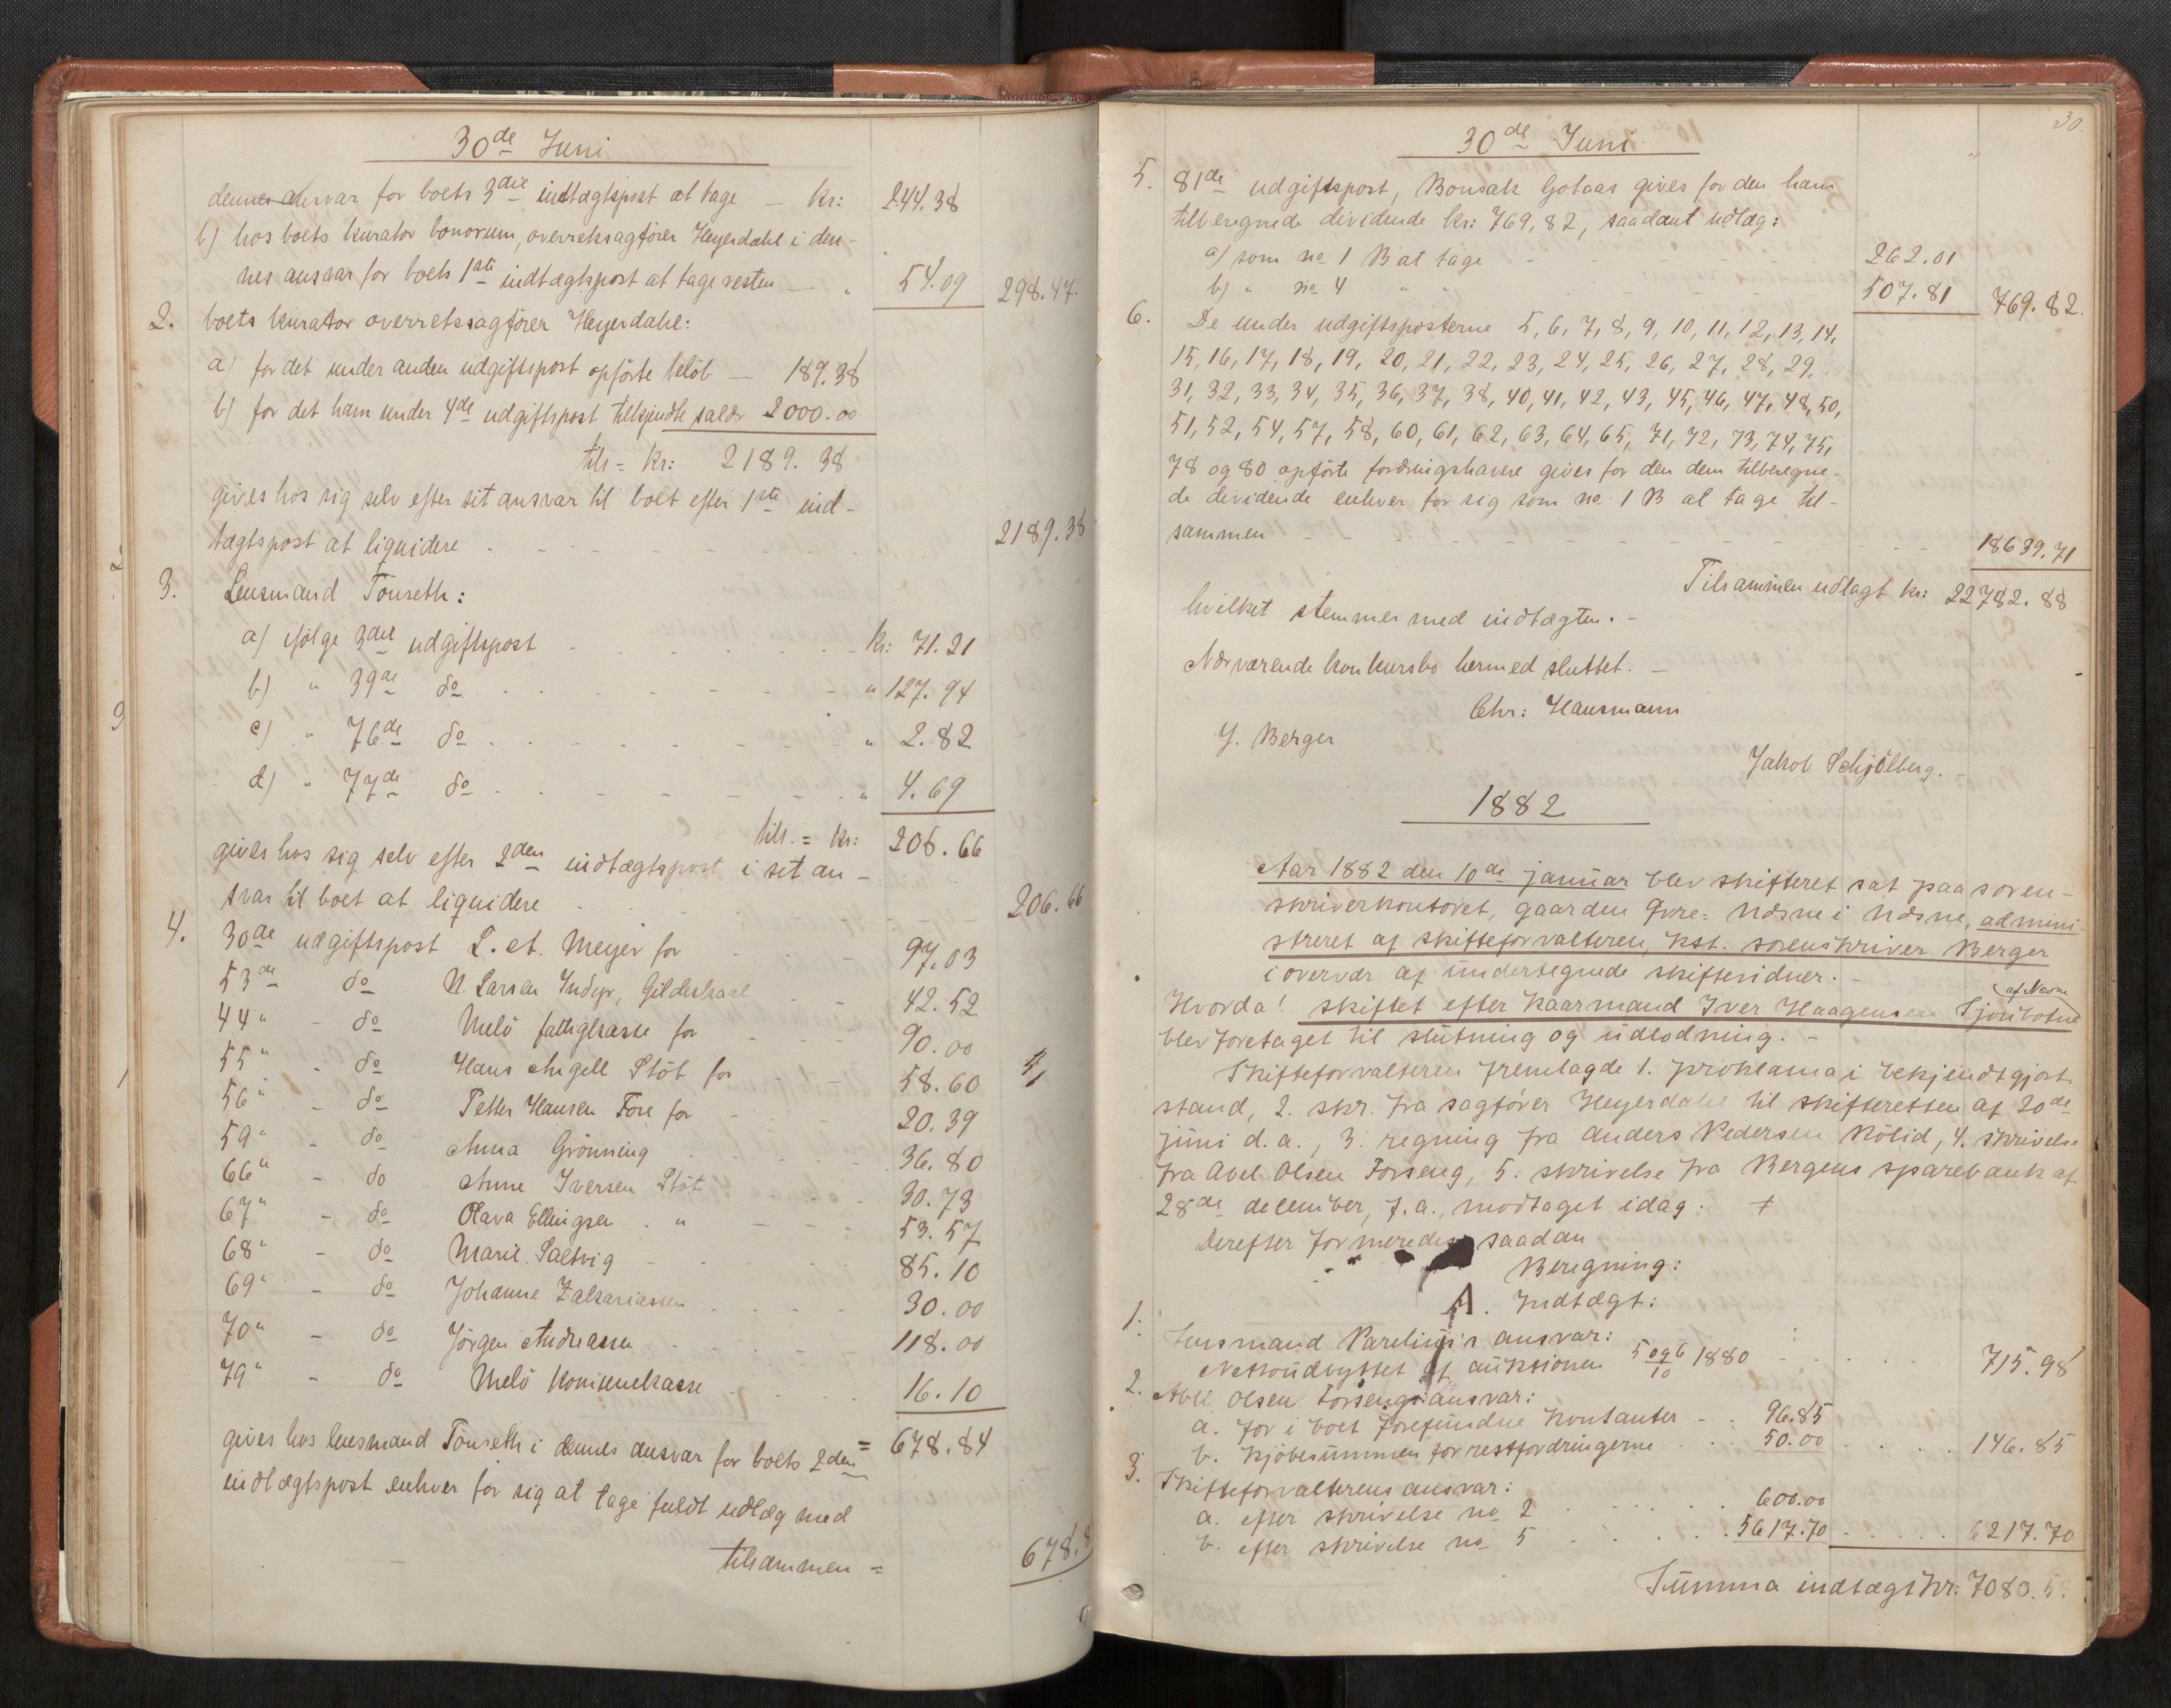 30de Juni
dennes ansvar for boets 3die indtægtspost at tage — kr: 244.38
b) hos boets kurator bonorum, overretssagfører Heyerdahl i den-
nes ansvar for boets 1ste indtægtspost at tage resten — " 54.09 298.47.
2. boets kurator overretssagfører Heyerdahl:
a) for det under anden udgiftspost opførte beløb — 189.38
b) for det ham under 4de udgiftspost tilkjendte salær 2000.00
tils = kr: 2189.38
gives hos sig selv efter sit ansvar til boet efter 1ste ind-
tægtspost at liquidere 2189.38
3. Lensmand Tönseth:
a) ifølge 3die udgiftspost kr: 71.21
b) " 39de do " 127.94
c) " 76de do " 2.82
d) " 77de do " 4.69
tils. = kr: 206.66
gives hos sig selv efter 2den indtægtspost i sit an-
svar til boet at liquidere 206.66
4. 30de udgiftspost L. et. Meyer for 97.03
53de do N. Larsen Indyr, Gildeskaal 42.52
44" - do Melö fattigkasse for 90.00
55" - do Hans Angell Stöt for 58.60
56" - do Petter Hansen Fore for 20.39
59" - do Anna Grönning 36.80
66" - do Anne Iversen Stöt 30.73
67" - do Olava Ellingsen " 53.57
68" - do Marie Saltvig 85.10
69" - do Johanne Zakariassen 30.00
70" - do Jörgen Andreassen 118.00
79" - do Melö Kommunekasse 16.10
= 678.84
gives hos lensmand Tönseth i dennes ansvar for boets 2den
indtægtspost enhver for sig at tage fuldt udlæg med
tilsammen = 678.8
30.
30de Juni
5. 81de udgiftspost, Bonsak Gotaas gives for den ham
tilberegnede dividende kr: 769,82, saadant udlæg:
a) som no 1 B at tage 262.01
b) " no 4 " " 507.81 769.82.
6. De under udgiftsposterne 5, 6, 7, 8, 9, 10, 11, 12, 13, 14,
15, 16, 17, 18, 19, 20, 21, 22, 23, 24, 25, 26, 27, 28, 29,
31, 32, 33, 34, 35, 36, 37, 38, 40, 41, 42, 43, 45, 46, 47, 48, 50,
51, 52, 54, 57, 58, 60, 61, 62, 63, 64, 65, 71, 72, 73, 74, 75,
78 og 80 opførte fordringshavere gives for den dem tilberegne-
de dividende enhver for sig som no 1 B at tage til-
sammen 18639.71
Tilsammen udlagt kr: 22782.88
hvilket stemmer med indtægten. -
Nærværende konkursbo hermed sluttet. -
Chr: Hansmann
J. Berger
Jakob Schjölberg. -
1882
Aar 1882 den 10de januar blev skifteret sat paa soren-
skriverkontoret, gaarden Øvre= Næsne i Næsne, admini-
streret af skifteforvalteren, kst. sorenskriver Berger
i overvær af undertegnede skiftevidner. -
af Næsne
Hvorda! skiftet efter Kaarmand Iver Haagensen Sjonbotne
blev foretaget til slutning og udlodning. -
Skifteforvalteren fremlagde 1. proklama i bekjendtgjort
stand, 2. skr. fra sagfører Heyerdahl til skifteretten af 20de
juni d.a., 3. regning fra Anders Pedersen Kölid, 4. skrivelse
fra Abel Olsen Forseng, 5. skrivelse fra Bergens sparebank af
28de december, f.a., modtaget idag. +
Derefter formeredes saadan
Beregning:
A. Indtægt:
1. Lensmand Parelius's ansvar:
Nettoudbyttet af auktionen 5 og 6/10 1880 715.98
2. Abel Olsen Forsengs ansvar:
a. for i boet forefundne kontanter 96.85
b. kjöbesummen for restfordringerne 50.00 146.85
3. Skifteforvalterens ansvar:
a. efter skrivelse no 2 600.00
b. efter skrivelse no 5 5617.70 6217.70
Summa indtægt kr: 7080.5